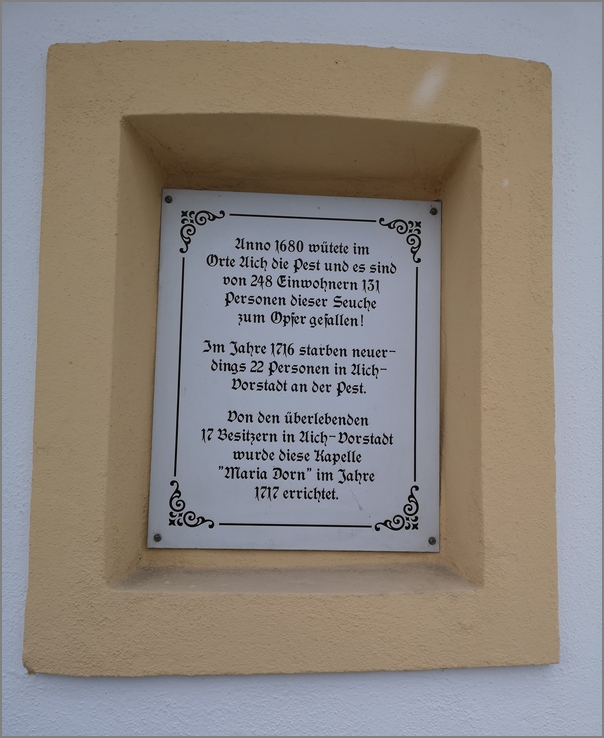 Anno 1680 wütete im
Orte Aich die Pest und es sind
von 248 Einwohnern 131
Personen dieser Seuche
zum Opfer gefallen!
Im Jahre 1716 starben neuer-
dings 22 Personen in Aich-
Vorstadt an der Pest.
Von den überlebenden
17 Besitzern in Aich-Vorstadt
wurde diese Kapelle
"Maria Dorn" im Jahre
1717 errichtet.